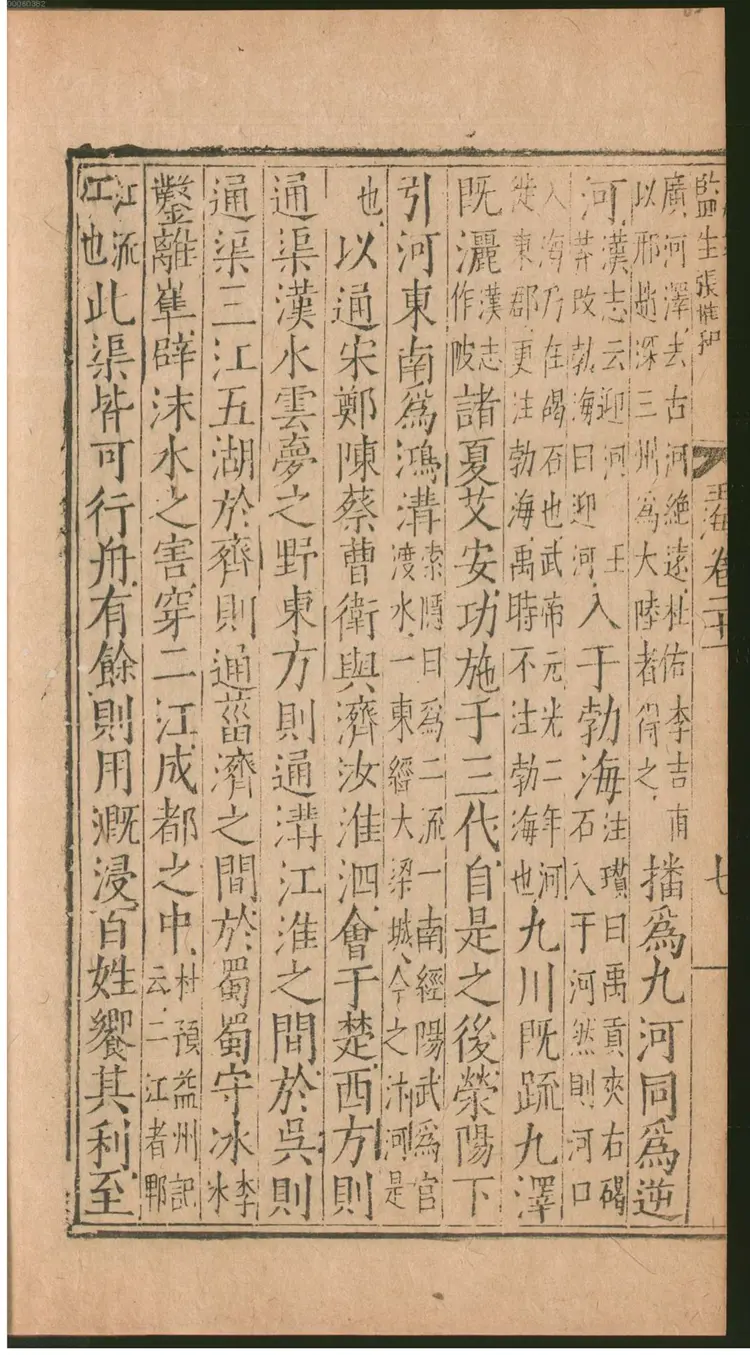 監生張惟和
玉海卷二十一
七
廣河澤去古河絶遠杜佑李吉甫以邢趙深三州爲大陸者得之播爲九河同爲逆
河漢志云迎河王莽改勃海曰迎河入于勃海注瓚曰禹貢夾右碣石入于河然則河口
入海乃在碣石也武帝元光二年河徙東郡更注勃海禹時不注勃海也九川既疏九澤
既灑漢志作陂諸夏艾安功施于三代自是之後滎陽下
引河東南爲鴻溝索隱曰爲二流一南經陽武爲官渡水一東經大梁城今之汴河是
也以通宋鄭陳蔡曹衛與濟汝淮泗會于楚西方則
通渠漢水雲夢之野東方則通溝江淮之間於吳則
通渠三江五湖於齊則通菑濟之間於蜀蜀守冰李氷
鑿離辟沫水之害穿二江成都之中杜預益州記云二江者郫
江流江也此渠皆可行舟有餘則用溉浸百姓饗其利至